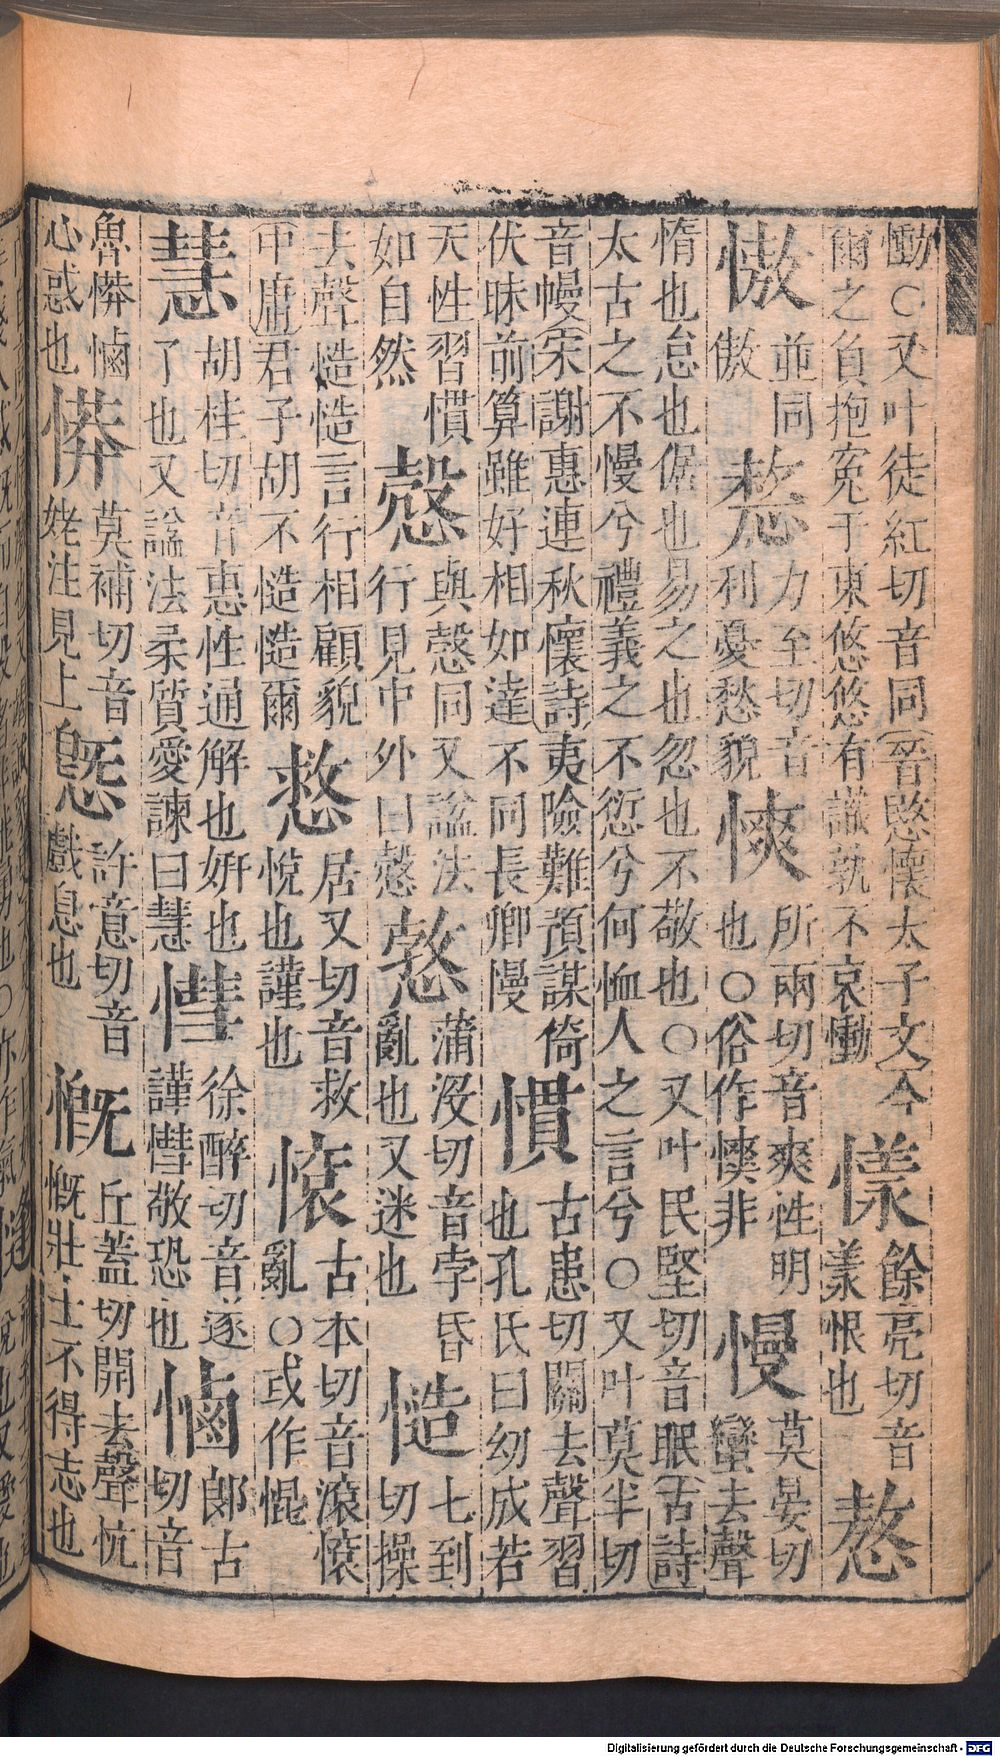 慟○又叶徒紅切音同晉愍懷太子文今
爾之負抱寃于東悠悠有識孰不哀慟
㨾餘亮切音
漾恨也
憥
憿並同
傲
𢠳力至切音
利憂愁貌
慡所兩切音爽性明
也○俗作㦼非
慢莫晏切
蠻去聲
惰也怠也倨也易之也忽也不敬也○又叶民堅切音眠古詩
太古之不慢兮禮義之不愆兮何恤人之言兮○又叶莫半切
音幔宋謝惠連秋懷詩夷險難預謀倚
伏昧前算雖好相如達不同長卿慢
慣古患切關去聲習
也孔氏曰幼成若
天性習慣
如自然
慤與愨同又諡法
行見中外曰愨
憝蒲没切音孛昏
亂也又迷也
慥七到
切操
去聲慥慥言行相顧貌
中庸君子胡不慥慥爾
慦居又切音救
悅也謹也
㥬古本切音滾㥬
亂○或作惃
慧胡桂切音惠性通解也姸也
了也又諡法柔質愛諫曰慧
㥞徐醉切音遂
謹㥞敬恐也
㥟郎古
切音
魯㥬㥟
心惑也
慔莫補切音
姥注見上
㤥許意切音
戲息也
慨丘蓋切開去聲忼
慨壯士不得志也
Digitalisierung gefördert durch die Deutsche Forschungsgemeinschaft - DFG